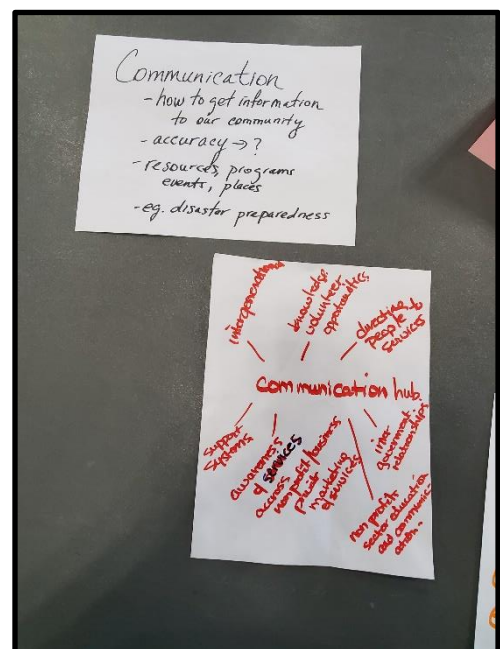 Communication
- how to get information
to our community
- accuracy → ?
- resources, programs
events, places
- eg. disaster preparedness
intergenerational
knowledge
volunteer
opportunities
directing
people to
services
communication hub.
support
systems
awareness
of services
across
nonprofit/business
marketing
of services
inter
government
relationships
non profit
sector education
and communic-
ation.